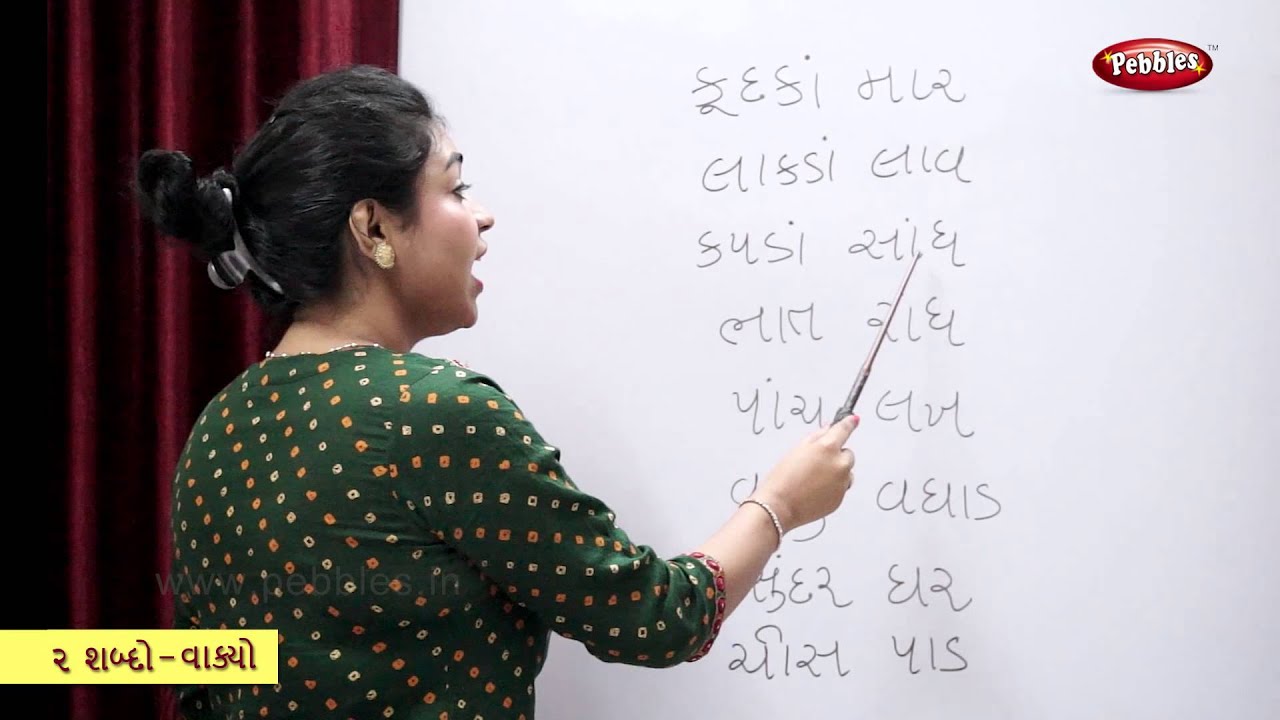 Pebbles TM
કૂદકાં માર
લાકડાં લાવ
કપડાં સાંધ
ભાત રાંધ
પાંચ લખ
વઘાડ
સુંદર ઘર
ચીસ પાડ
www.pebbles.in
૨ શબ્દો - વાક્યો